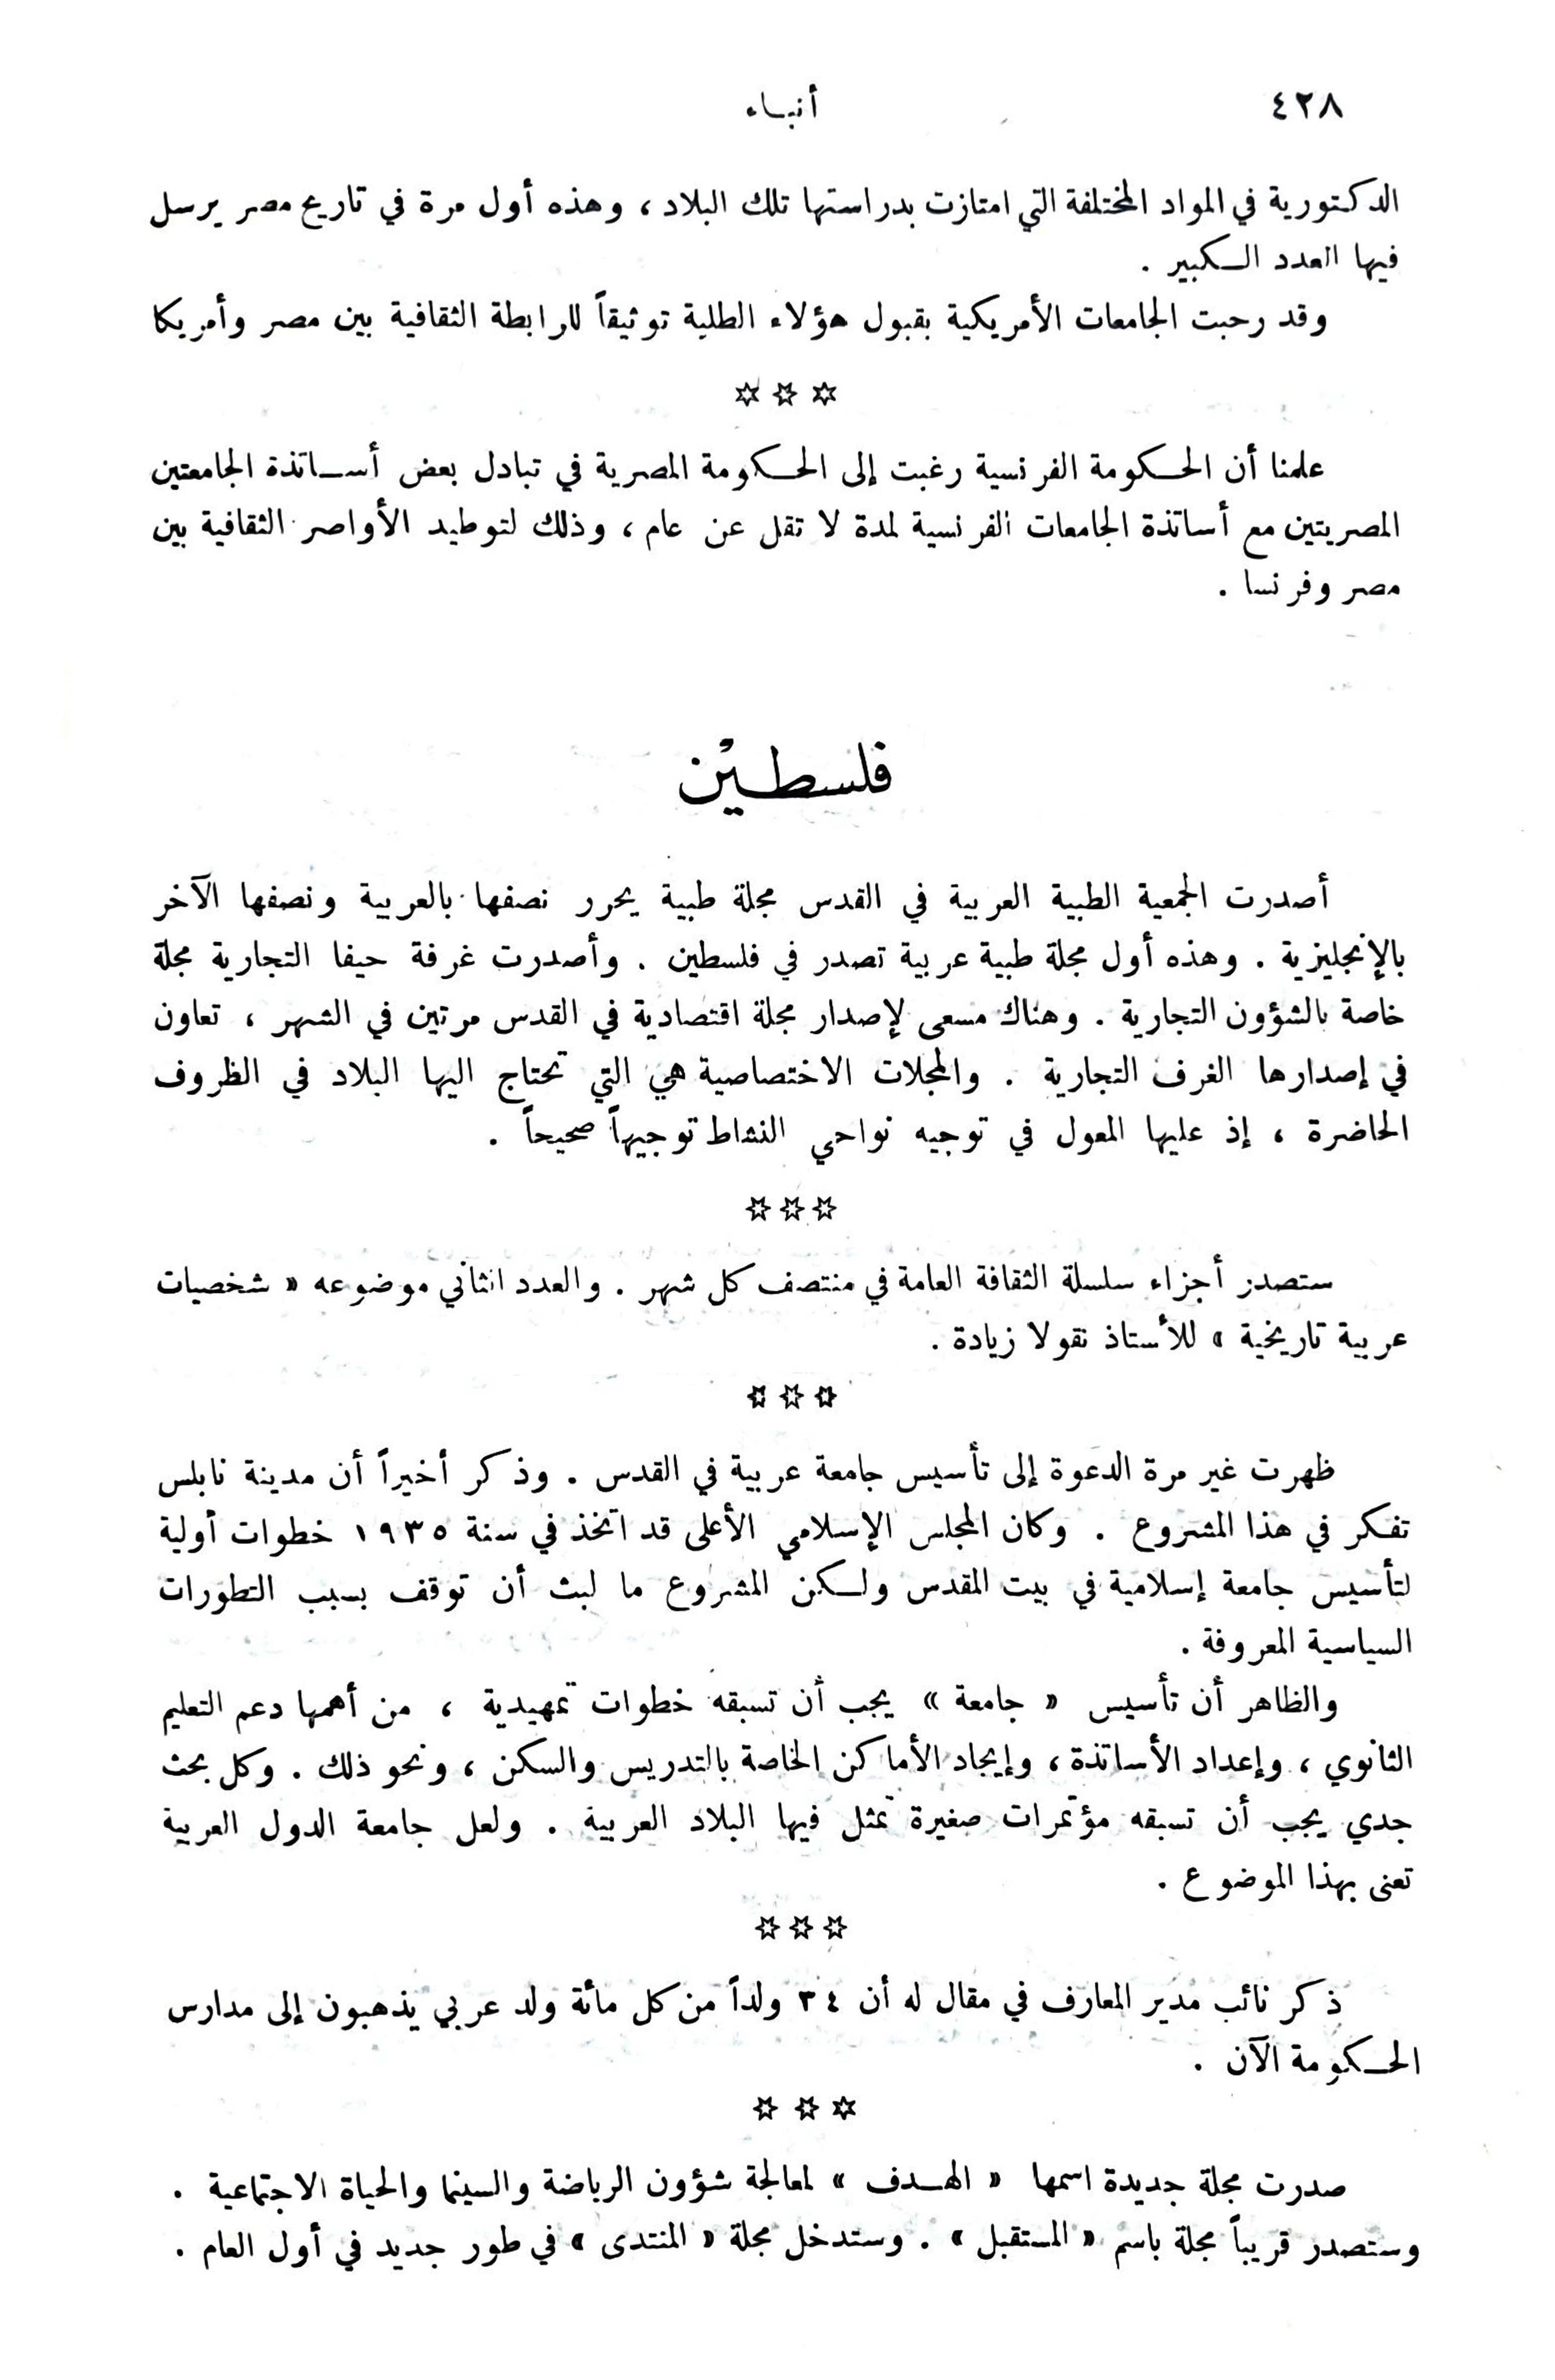 ٤٢٨
أنباء
الدكتورية في المواد المختلفة التي امتازت بدراستها تلك البلاد ، وهذه أول مرة في تاريخ مصر يرسل
فيها العدد الكبير .
وقد رحبت الجامعات الأمريكية بقبول هؤلاء الطلبة توثيقاً للرابطة الثقافية بين مصر وأمريكا
☆ ☆ ☆
علمنا أن الحكومة الفرنسية رغبت إلى الحكومة المصرية في تبادل بعض أساتذة الجامعتين
المصريتين مع أساتذة الجامعات الفرنسية لمدة لا تقل عن عام ، وذلك لتوطيد الأواصر الثقافية بين
مصر وفرنسا .
فلسطين
أصدرت الجمعية الطبية العربية في القدس مجلة طبية يحرر نصفها بالعربية ونصفها الآخر
بالإنجليزية . وهذه أول مجلة طبية عربية تصدر في فلسطين . وأصدرت غرفة حيفا التجارية مجلة
خاصة بالشؤون التجارية . وهناك مسعى لإصدار مجلة اقتصادية في القدس مرتين في الشهر ، تعاون
في إصدارها الغرف التجارية . والمجلات الاختصاصية هي التي تحتاج اليها البلاد في الظروف
الحاضرة ، إذ عليها المعول في توجيه نواحي النشاط توجيهاً صحيحاً .
☆ ☆ ☆
ستصدر أجزاء سلسلة الثقافة العامة في منتصف كل شهر . والعدد الثاني موضوعه « شخصيات
عربية تاريخية » للأستاذ نقولا زيادة .
☆ ☆ ☆
ظهرت غير مرة الدعوة إلى تأسيس جامعة عربية في القدس . وذكر أخيراً أن مدينة نابلس
تفكر في هذا المشروع . وكان المجلس الإسلامي الأعلى قد اتخذ في سنة ١٩٣٥ خطوات أولية
لتأسيس جامعة إسلامية في بيت المقدس ولكن المشروع ما لبث أن توقف بسبب التطورات
السياسية المعروفة .
والظاهر أن تأسيس « جامعة » يجب أن تسبقه خطوات تمهيدية ، من أهمها دعم التعليم
الثانوي ، وإعداد الأساتذة ، وإيجاد الأماكن الخاصة بالتدريس والسكن ، ونحو ذلك . وكل بحث
جدي يجب أن تسبقه مؤتمرات صغيرة تمثل فيها البلاد العربية . ولعل جامعة الدول العربية
تعنى بهذا الموضوع .
☆ ☆ ☆
ذكر نائب مدير المعارف في مقال له أن ٣٤ ولداً من كل مائة ولد عربي يذهبون إلى مدارس
الحكومة الآن .
☆ ☆ ☆
صدرت مجلة جديدة اسمها « الهدف » لمعالجة شؤون الرياضة والسينما والحياة الاجتماعية .
وستصدر قريباً مجلة باسم « المستقبل » . وستدخل مجلة « المنتدى » في طور جديد في أول العام .